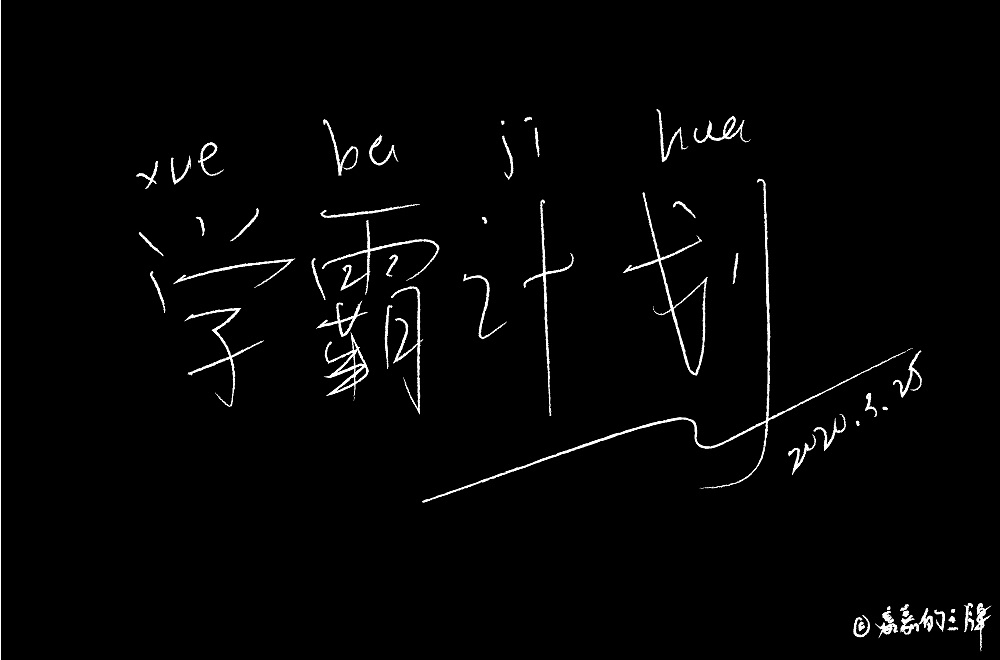 xue ba ji hua
学霸计划
2020.3.25
嘉嘉的王牌